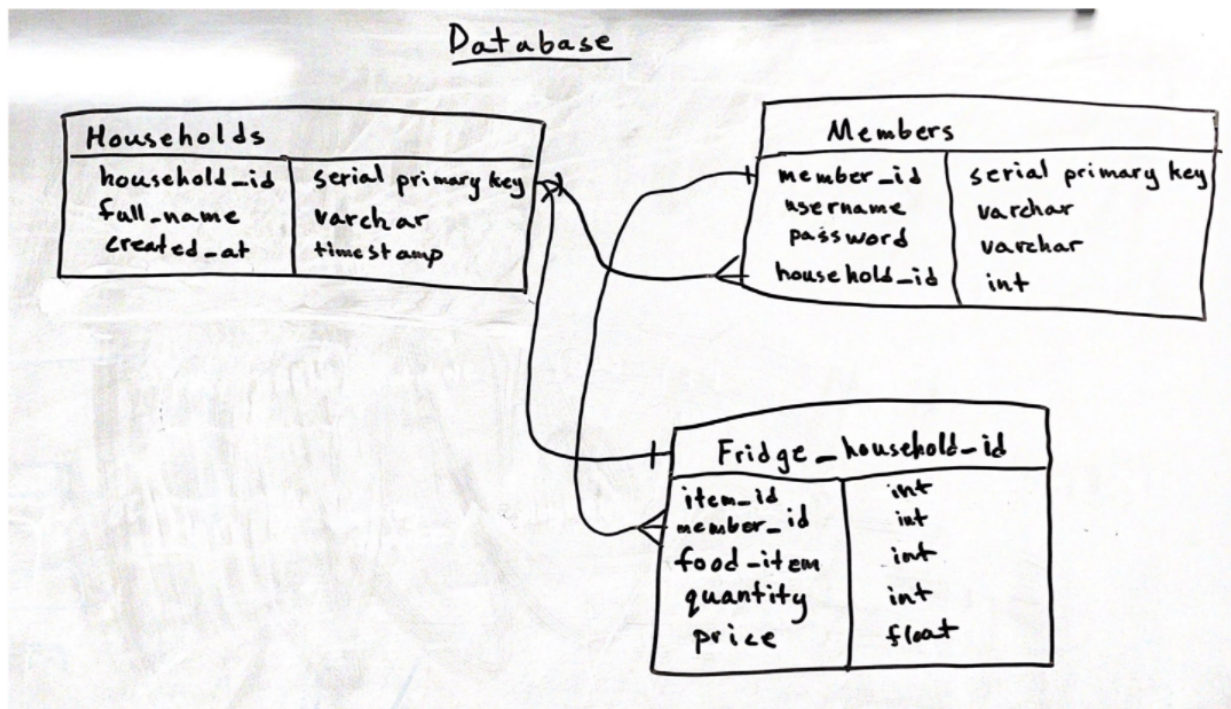 Database
Households
household_id serial primary key
full_name varchar
created_at timestamp
Members
member_id serial primary key
username varchar
password varchar
household_id int
Fridge_household_id
item_id int
member_id int
food_item int
quantity int
price float